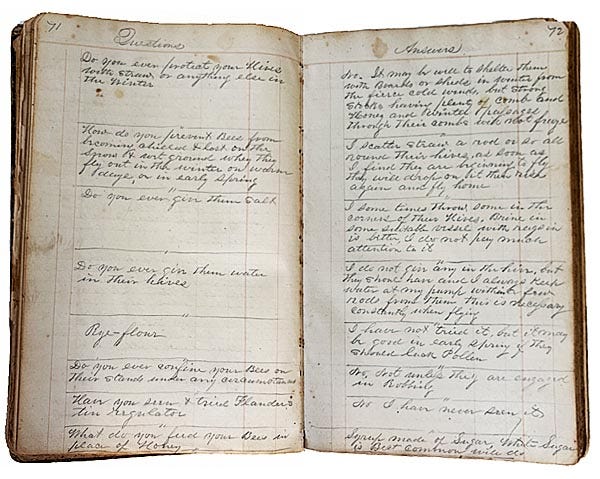 71
Questions
Do you ever protect your Hives
with straw or anything else in
the Winter
How do you prevent Bees from
becoming chilled & lost on the
Snow & wet ground when they
fly out in the winter on warm
days, or in early Spring
Do you ever give them Salt
Do you ever give them water
in their Hives
Rye-flour
Do you ever confine your Bees on
their stands under any circumstances
Have you seen & tried Flanders
regulator
What do you feed your Bees in
place of Honey
72
Answers
No. It may be well to shelter them
with Boards or sheds in winter from
the fierce cold winds, but strong
Stocks having plenty of comb and
Honey and Winter passages
through their combs will not freeze
I scatter straw a rod or so all
round their hives, as soon as
I find they are begining to fly
they will drop on it then rise
again and fly home
I some times throw some in the
corners of their Hives. Brine in
some suitable vessel with
is better, I do not pay much
attention to it
I do not give any in the hive, but
they should have and I always keep
water at my pump within a few
rods from them, this is necessary
constantly when flying
I have not tried it, but it may
be good in early spring if they
should lack Pollen
No, Not unless they are engaged
in Robbing
No I have never seen it
Syrup made of Sugar, White Sugar
is Best common will do